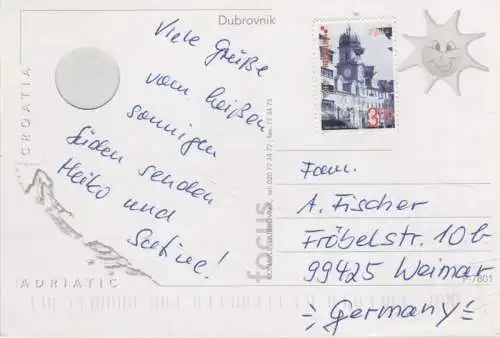 Dubrovnik
CROATIA
ADRIATIC
Viele Grüße
vom heißen
sonnigen
Süden senden
Heiko und
focus
Fam.
A. Fischer
Fröbelstr. 10b
99425 Weimar
Germany